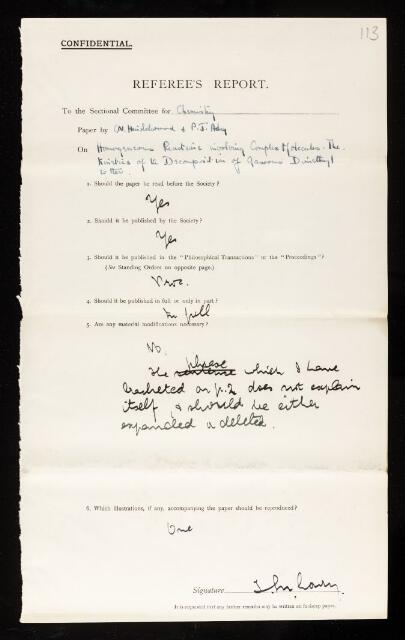 113
CONFIDENTIAL.
REFEREE'S REPORT.
To the Sectional Committee for Chemistry
Paper by C.N. Hinshelwood & P.J. Askey
On Homogeneous Reactions involving Complex Molecules. The
Kinetics of the Decomposition of Gaseous Dimethyl
Ether.
1. Should the paper be read before the Society?
Yes
2. Should it be published by the Society?
Yes
3. Should it be published in the "Philosophical Transactions" or the "Proceedings"?
(See Standing Orders on opposite page.)
Proc.
4. Should it be published in full or only in part?
In full
5. Are any material modifications necessary?
No.
phrase
The sentence which I have
bracketed on p.2 does not explain
itself & should be either
expanded or deleted.
6. Which illustrations, if any, accompanying the paper should be reproduced?
One
Signature
It is requested that any further remarks may be written on foolscap paper.